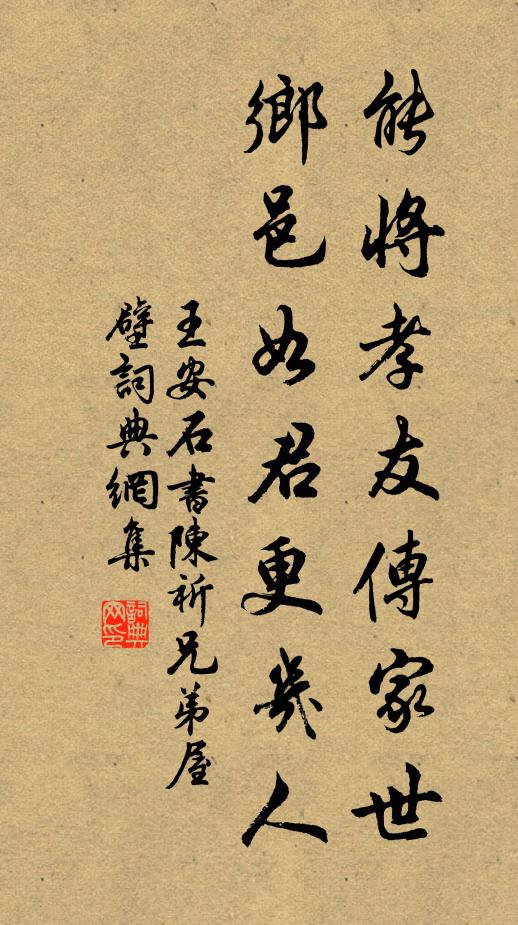 能將孝友傳家世
鄉邑如君更幾人
王安石書陳祈兄弟屋
壁詞典網集
詞典
网印